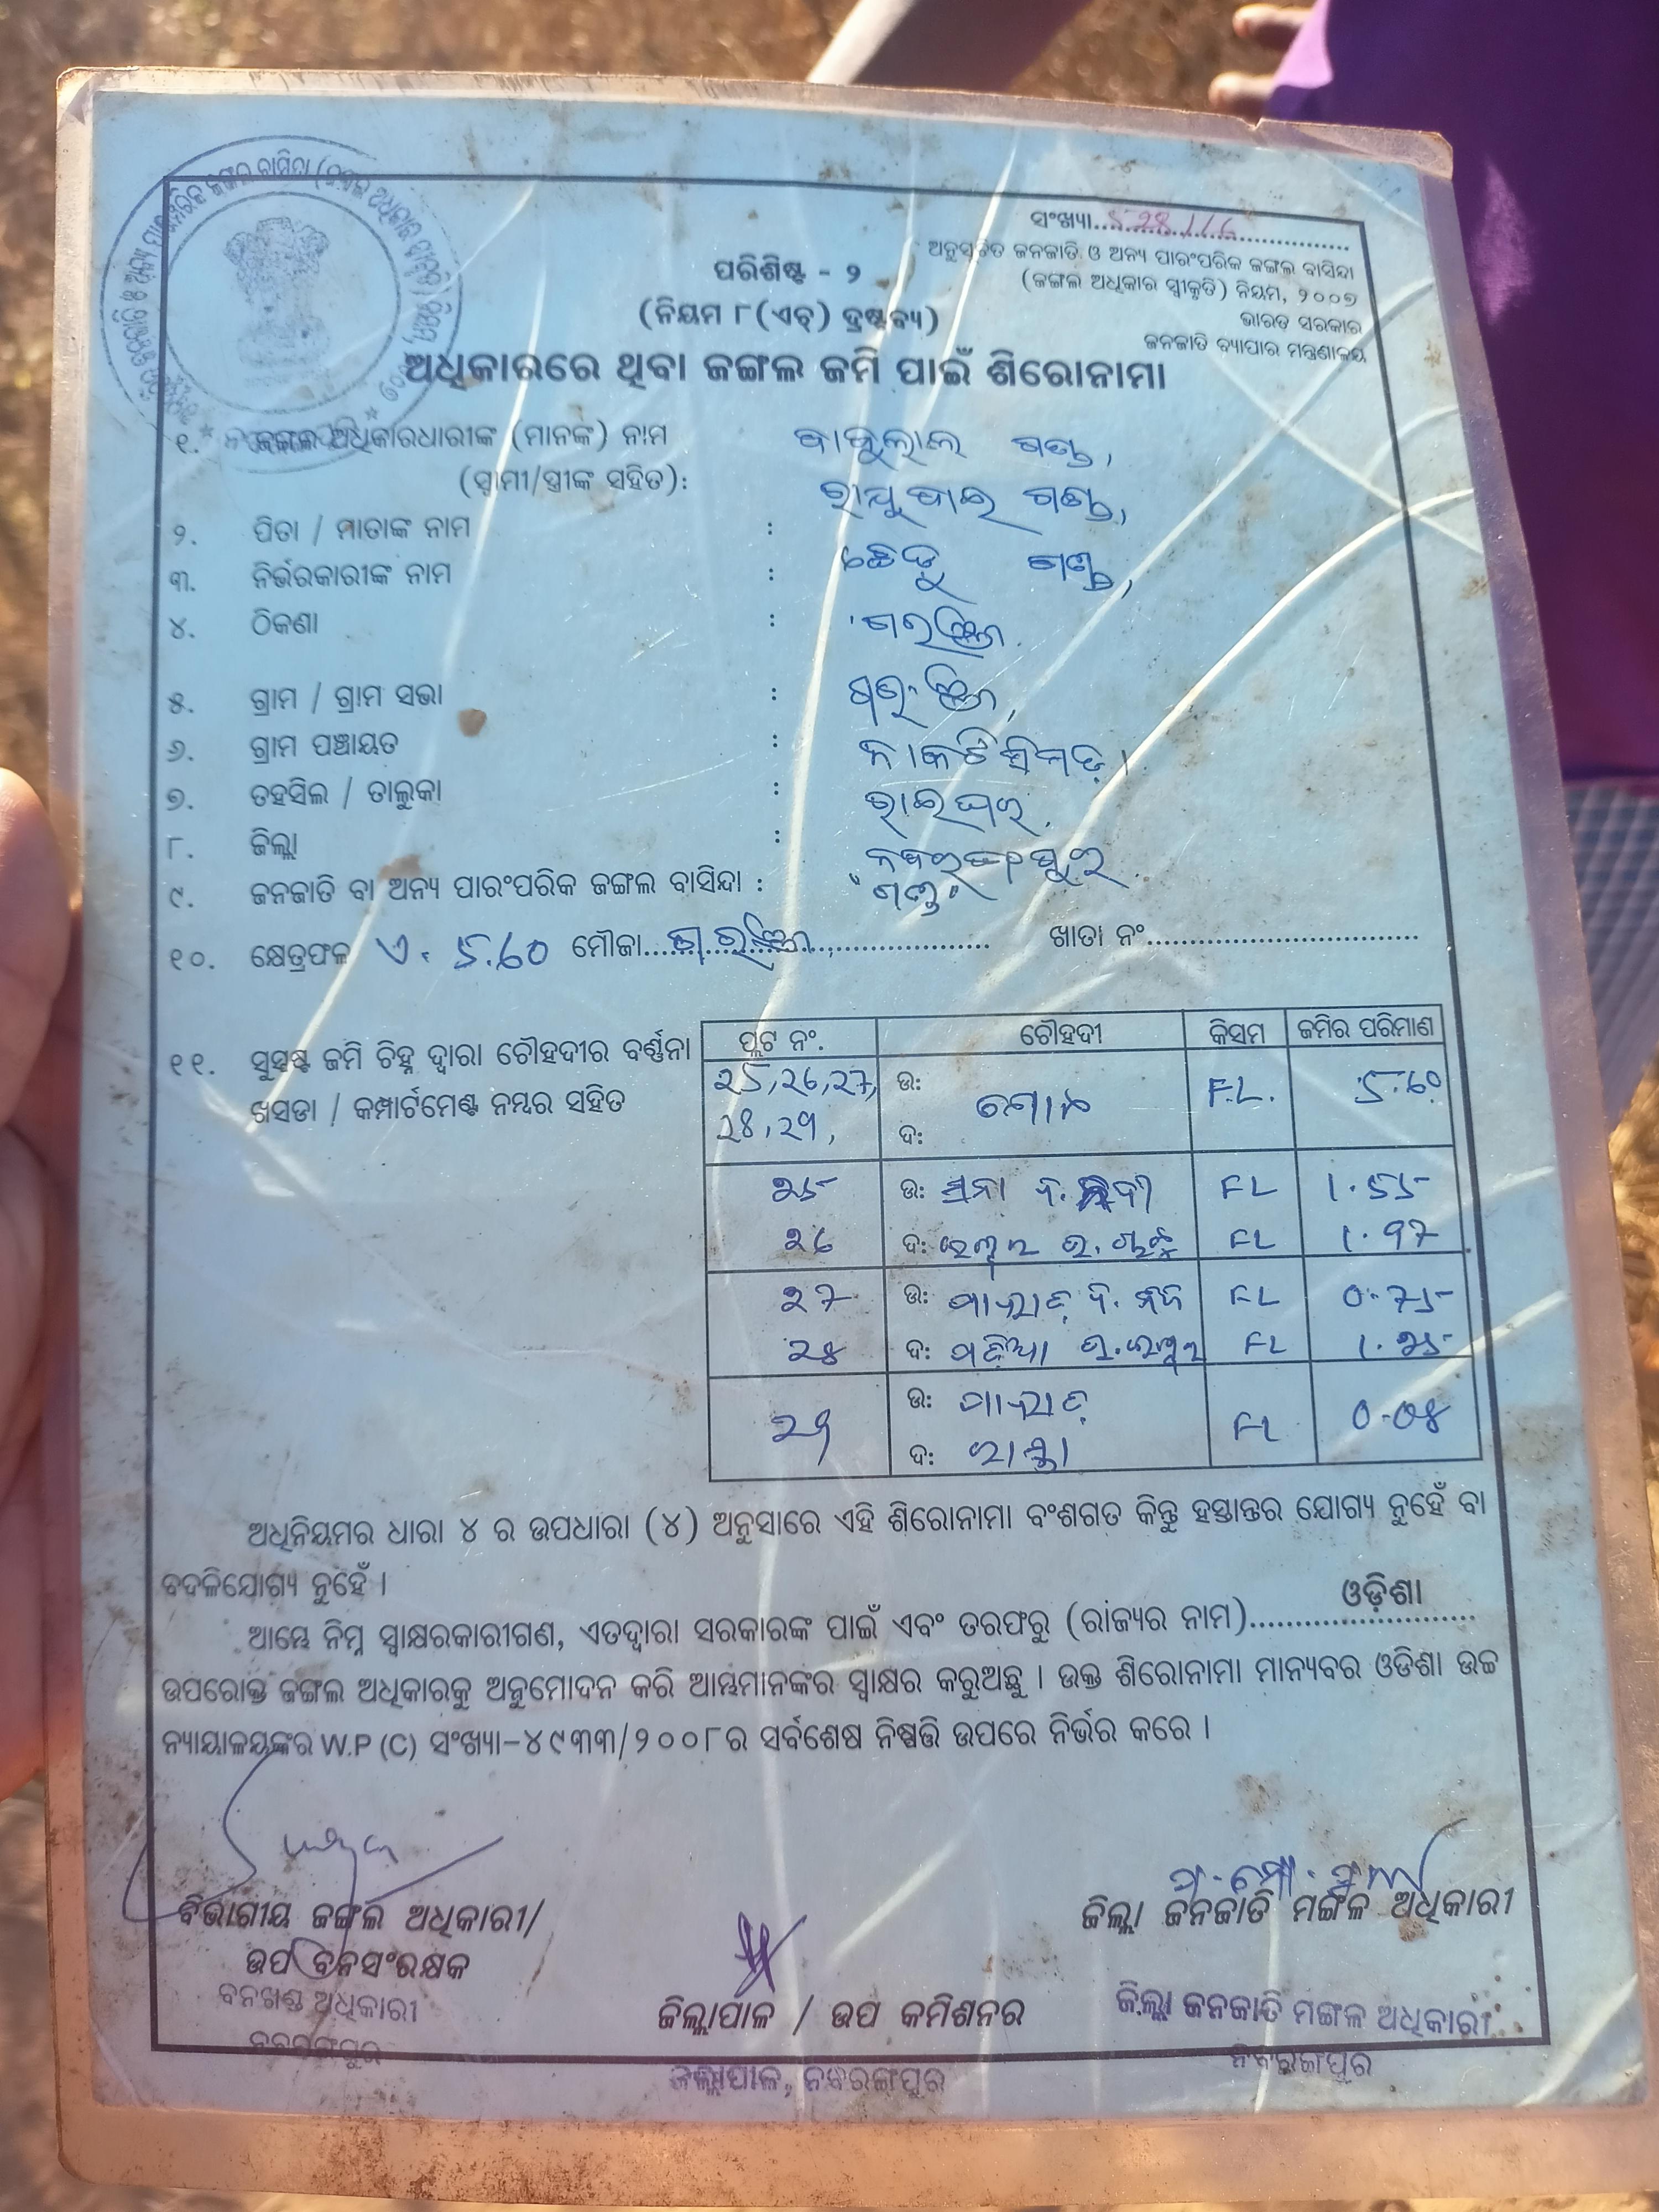 ସଂଖ୍ୟା
ଅନୁସୂଚିତ ଜନଜାତି ଓ ଅନ୍ୟ ପାରଂପରିକ ଜଙ୍ଗଲ ବାସିନ୍ଦା
(ଜଙ୍ଗଲ ଅଧିକାର ସ୍ୱୀକୃତି) ନିୟମ, ୨୦୦୭
ଭାରତ ସରକାର
ଜନଜାତି ବ୍ୟାପାର ମନ୍ତ୍ରଣାଳୟ
ପରିଶିଷ୍ଟ - ୨
(ନିୟମ ୮(ଏଚ୍) ଦ୍ରଷ୍ଟବ୍ୟ)
ଅଧିକାରରେ ଥିବା ଜଙ୍ଗଲ ଜମି ପାଇଁ ଶିରୋନାମା
୧. ଜଙ୍ଗଲ ଅଧିକାରଧାରୀଙ୍କ (ମାନଙ୍କ) ନାମ ବାବୁଲାଲ ଗଣ୍ଡ,
(ସ୍ୱାମୀ/ସ୍ତ୍ରୀଙ୍କ ସହିତ): ଗଣ୍ଡ,
୨. ପିତା / ମାତାଙ୍କ ନାମ : ଗଣ୍ଡ,
୩. ନିର୍ଭରକାରୀଙ୍କ ନାମ :
୪. ଠିକଣା :
୫. ଗ୍ରାମ / ଗ୍ରାମ ସଭା :
୬. ଗ୍ରାମ ପଞ୍ଚାୟତ :
୭. ତହସିଲ / ତାଲୁକା : ରାଇଘର
୮. ଜିଲ୍ଲା : ନବରଙ୍ଗପୁର
୯. ଜନଜାତି ବା ଅନ୍ୟ ପାରଂପରିକ ଜଙ୍ଗଲ ବାସିନ୍ଦା : "ଗଣ୍ଡ"
୧୦. କ୍ଷେତ୍ରଫଳ ଏ. 5.60 ମୌଜା ଖାତା ନଂ
୧୧. ସୁସ୍ପଷ୍ଟ ଜମି ଚିହ୍ନ ଦ୍ୱାରା ଚୌହଦୀର ବର୍ଣ୍ଣନା
ଖସଡା / କମ୍ପାର୍ଟମେଣ୍ଟ ନମ୍ବର ସହିତ
ପ୍ଲଟ ନଂ. ଚୌହଦୀ କିସମ ଜମିର ପରିମାଣ
25, 26, 27, ଉ: F.L. 5.60
28, 29, ଦ:
25 ଉ: FL 1.55
26 ଦ: FL 1.97
27 ଉ: ପାହାଡ଼ FL 0.75
28 ଦ: FL 1.25
29 ଉ: ପାହାଡ଼ FL 0.08
ଦ: ରାସ୍ତା
ଅଧିନିୟମର ଧାରା ୪ ର ଉପଧାରା (୪) ଅନୁସାରେ ଏହି ଶିରୋନାମା ବଂଶଗତ କିନ୍ତୁ ହସ୍ତାନ୍ତର ଯୋଗ୍ୟ ନୁହେଁ ବା
ବଦଳିଯୋଗ୍ୟ ନୁହେଁ ।
ଆମ୍ଭେ ନିମ୍ନ ସ୍ୱାକ୍ଷରକାରୀଗଣ, ଏତଦ୍ୱାରା ସରକାରଙ୍କ ପାଇଁ ଏବଂ ତରଫରୁ (ରାଜ୍ୟର ନାମ) ଓଡ଼ିଶା
ଉପରୋକ୍ତ ଜଙ୍ଗଲ ଅଧିକାରକୁ ଅନୁମୋଦନ କରି ଆମ୍ଭମାନଙ୍କର ସ୍ୱାକ୍ଷର କରୁଅଛୁ । ଉକ୍ତ ଶିରୋନାମା ମାନ୍ୟବର ଓଡିଶା ଉଚ୍ଚ
ନ୍ୟାୟାଳୟଙ୍କର W.P (C) ସଂଖ୍ୟା–୪୯୩୩/୨୦୦୮ର ସର୍ବଶେଷ ନିଷ୍ପତ୍ତି ଉପରେ ନିର୍ଭର କରେ ।
ବିଭାଗୀୟ ଜଙ୍ଗଲ ଅଧିକାରୀ/
ଉପ ବନସଂରକ୍ଷକ
ବନଖଣ୍ଡ ଅଧିକାରୀ
ନବରଙ୍ଗପୁର
ଜିଲ୍ଲାପାଳ / ଉପ କମିଶନର
ଜିଲ୍ଲାପାଳ, ନବରଙ୍ଗପୁର
ଜିଲ୍ଲା ଜନଜାତି ମଙ୍ଗଳ ଅଧିକାରୀ
ଜିଲ୍ଲା ଜନଜାତି ମଙ୍ଗଳ ଅଧିକାରୀ
ନବରଙ୍ଗପୁର